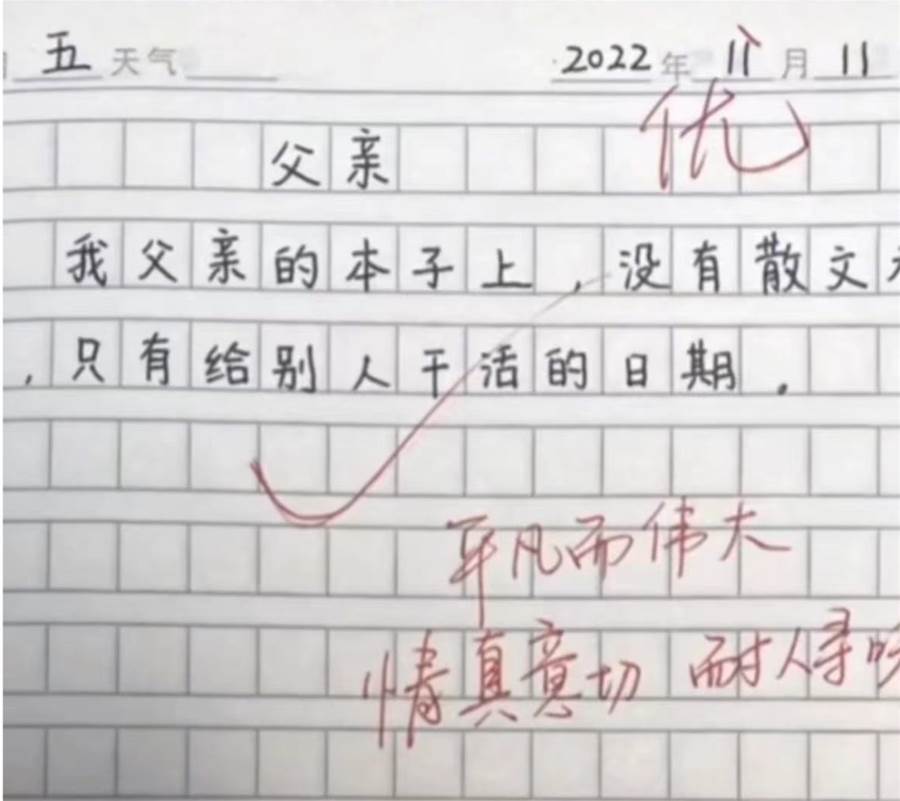 五 天气 2022年 11月 11
优
父亲
我父亲的本子上,没有散文
,只有给别人干活的日期.
平凡而伟大
情真意切 耐人寻